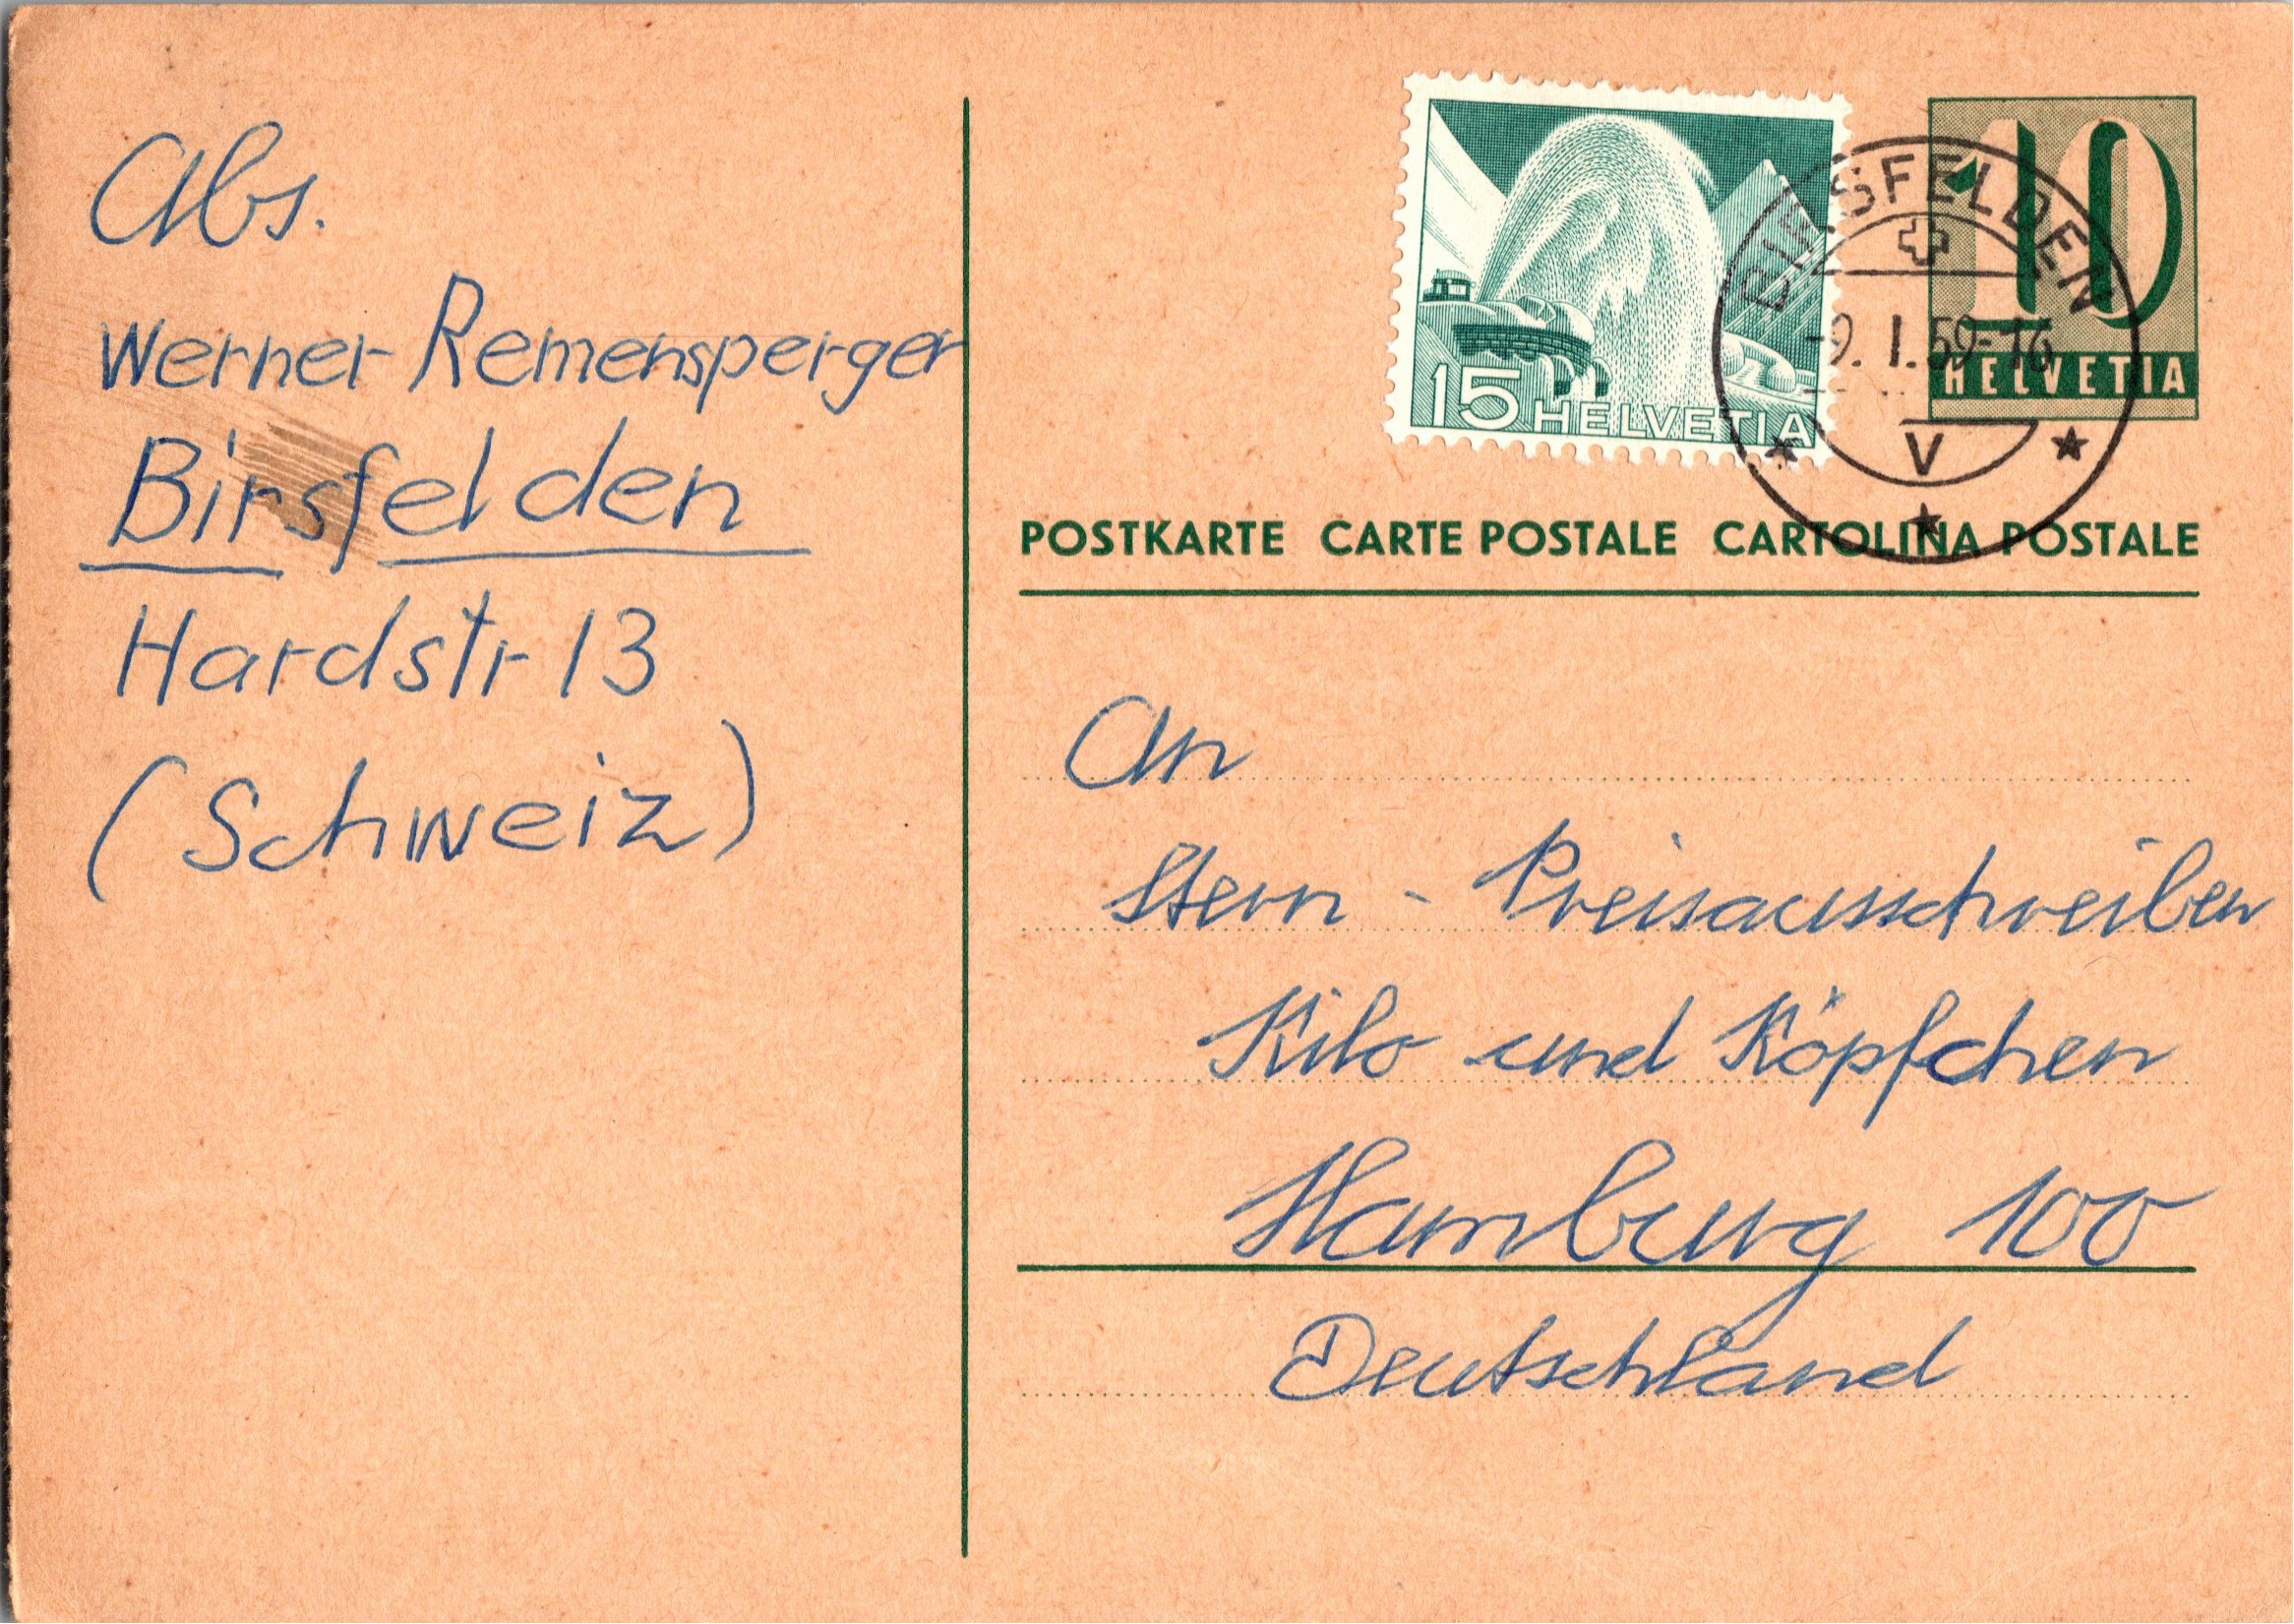 Abs.
Werner Remensperger
Birsfelden
Hardstr 13
(Schweiz)
15 HELVETIA
10
HELVETIA
BIRSFELDEN
-9. I. 59-16
V
POSTKARTE CARTE POSTALE CARTOLINA POSTALE
An
Stern - Preisausschreiben
Kilo und Köpfchen
Hamburg 100
Deutschland